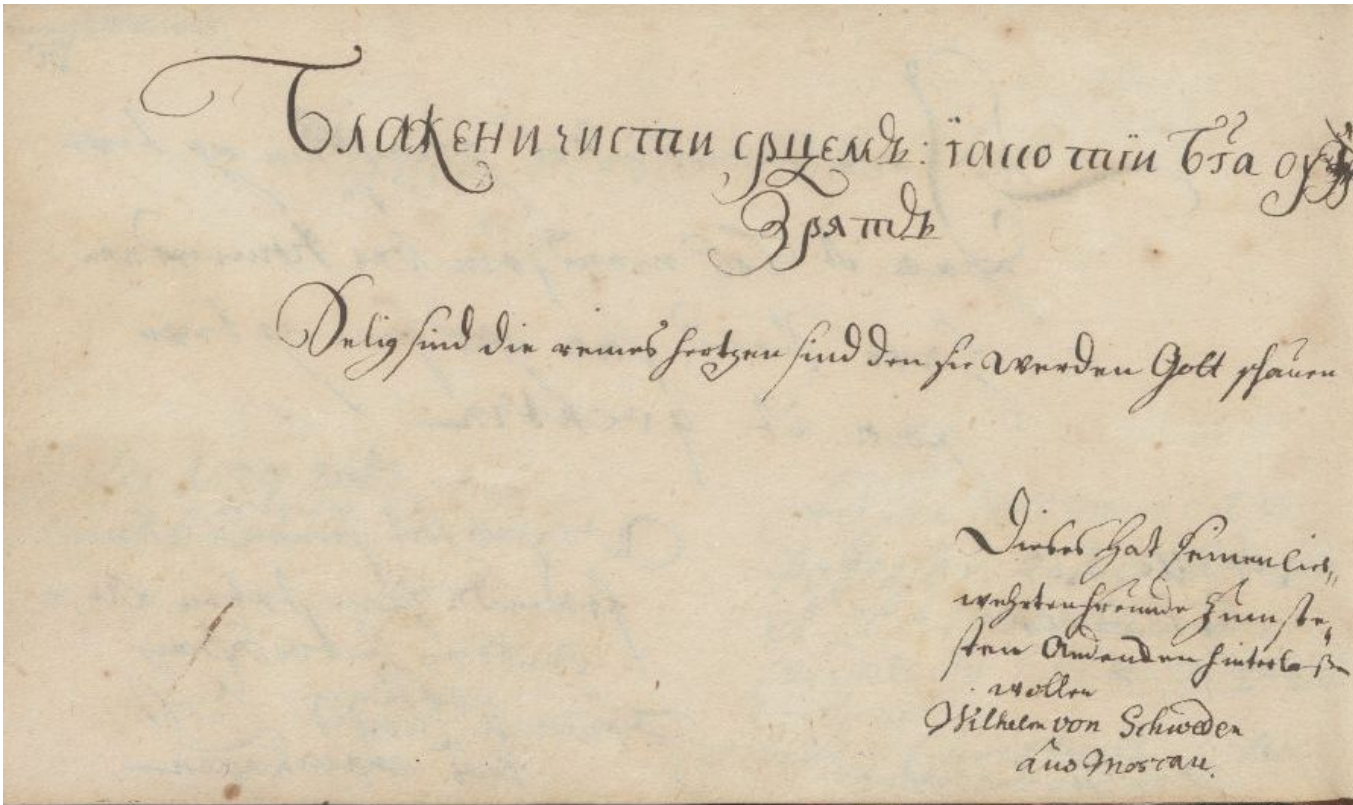 Блажени чисти срцемъ: їако тїи Бга оу
Зрятъ
Selig sind die reines hertzen sind den sie werden Gott schauen
Dieses hat seinen lieb„
wehrten freunde zum ste„
sten Andencken hinterlaßen
wollen
Wilhelm von Schweden
aus Moscau.